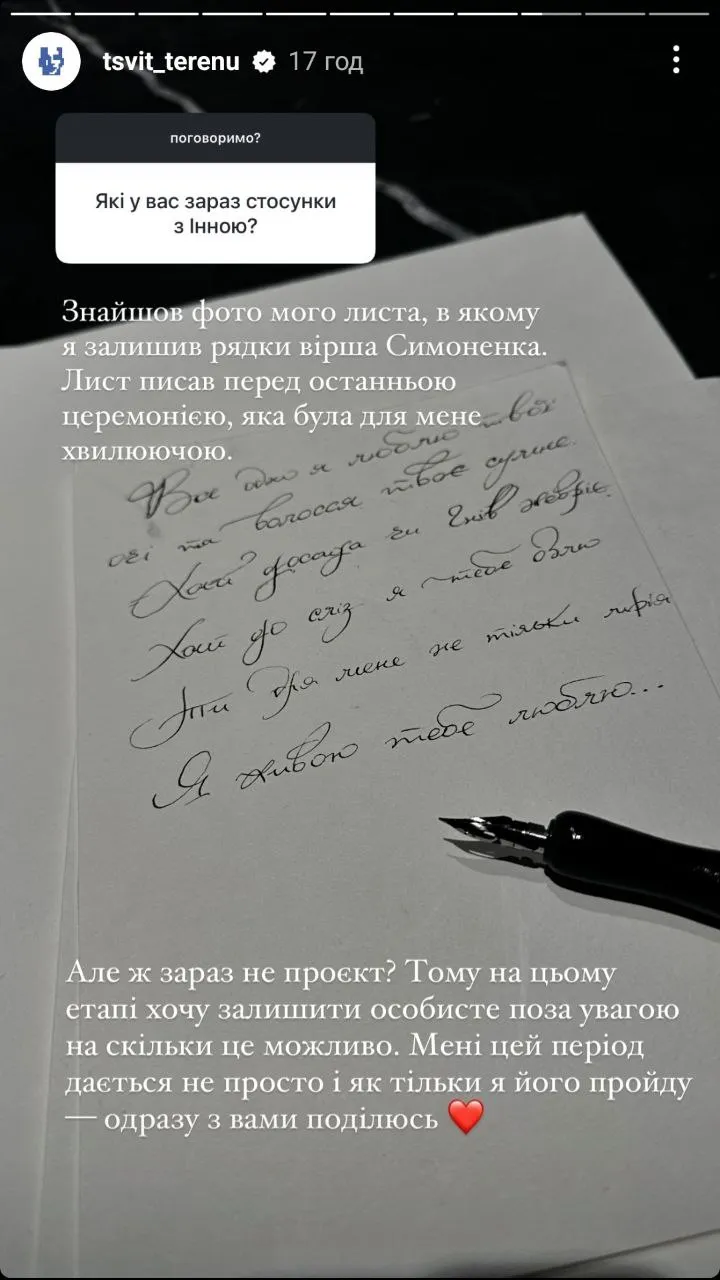 tsvit_terenu 17 год
поговоримо?
Які у вас зараз стосунки
з Інною?
Знайшов фото мого листа, в якому
я залишив рядки вірша Симоненка.
Лист писав перед останньою
церемонією, яка була для мене
хвилюючою.
Все одно я люблю твої
очі та волосся твоє сумне.
Хай досада чи гнів жевріє,
Хай до сліз я тебе
Ти для мене не тільки мрія
Я живою тебе люблю...
Але ж зараз не проєкт? Тому на цьому
етапі хочу залишити особисте поза увагою
на скільки це можливо. Мені цей період
дається не просто і як тільки я його пройду
— одразу з вами поділюсь ❤️